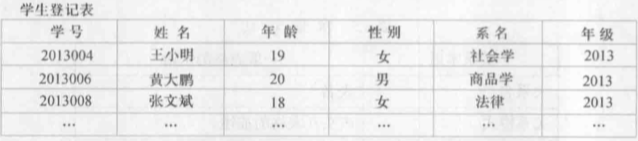 学生登记表
学号 姓名 年龄 性别 系名 年级
2013004 王小明 19 女 社会学 2013
2013006 黄大鹏 20 男 商品学 2013
2013008 张文斌 18 女 法律 2013
… … … … … …